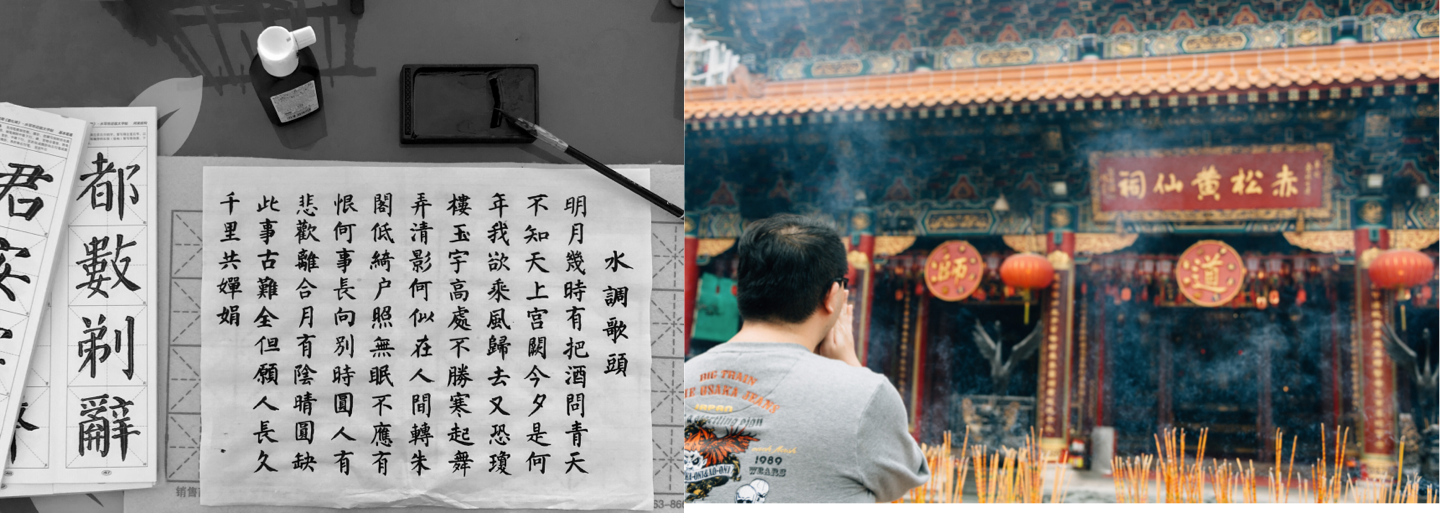 水調歌頭
明月幾時有把酒問青天
不知天上宫闕今夕是何
年我欲乘風歸去又恐瓊
樓玉宇高處不勝寒起舞
弄清影何似在人間轉朱
閣低綺户照無眠不應有
恨何事長向别時圓人有
悲歡離合月有陰晴圓缺
此事古難全但願人長久
千里共嬋娟
都數剃辭
君
销售
赤松黃仙祠
師
道
BIG TRAIN
OSAKA JEANS
1989
YEARS